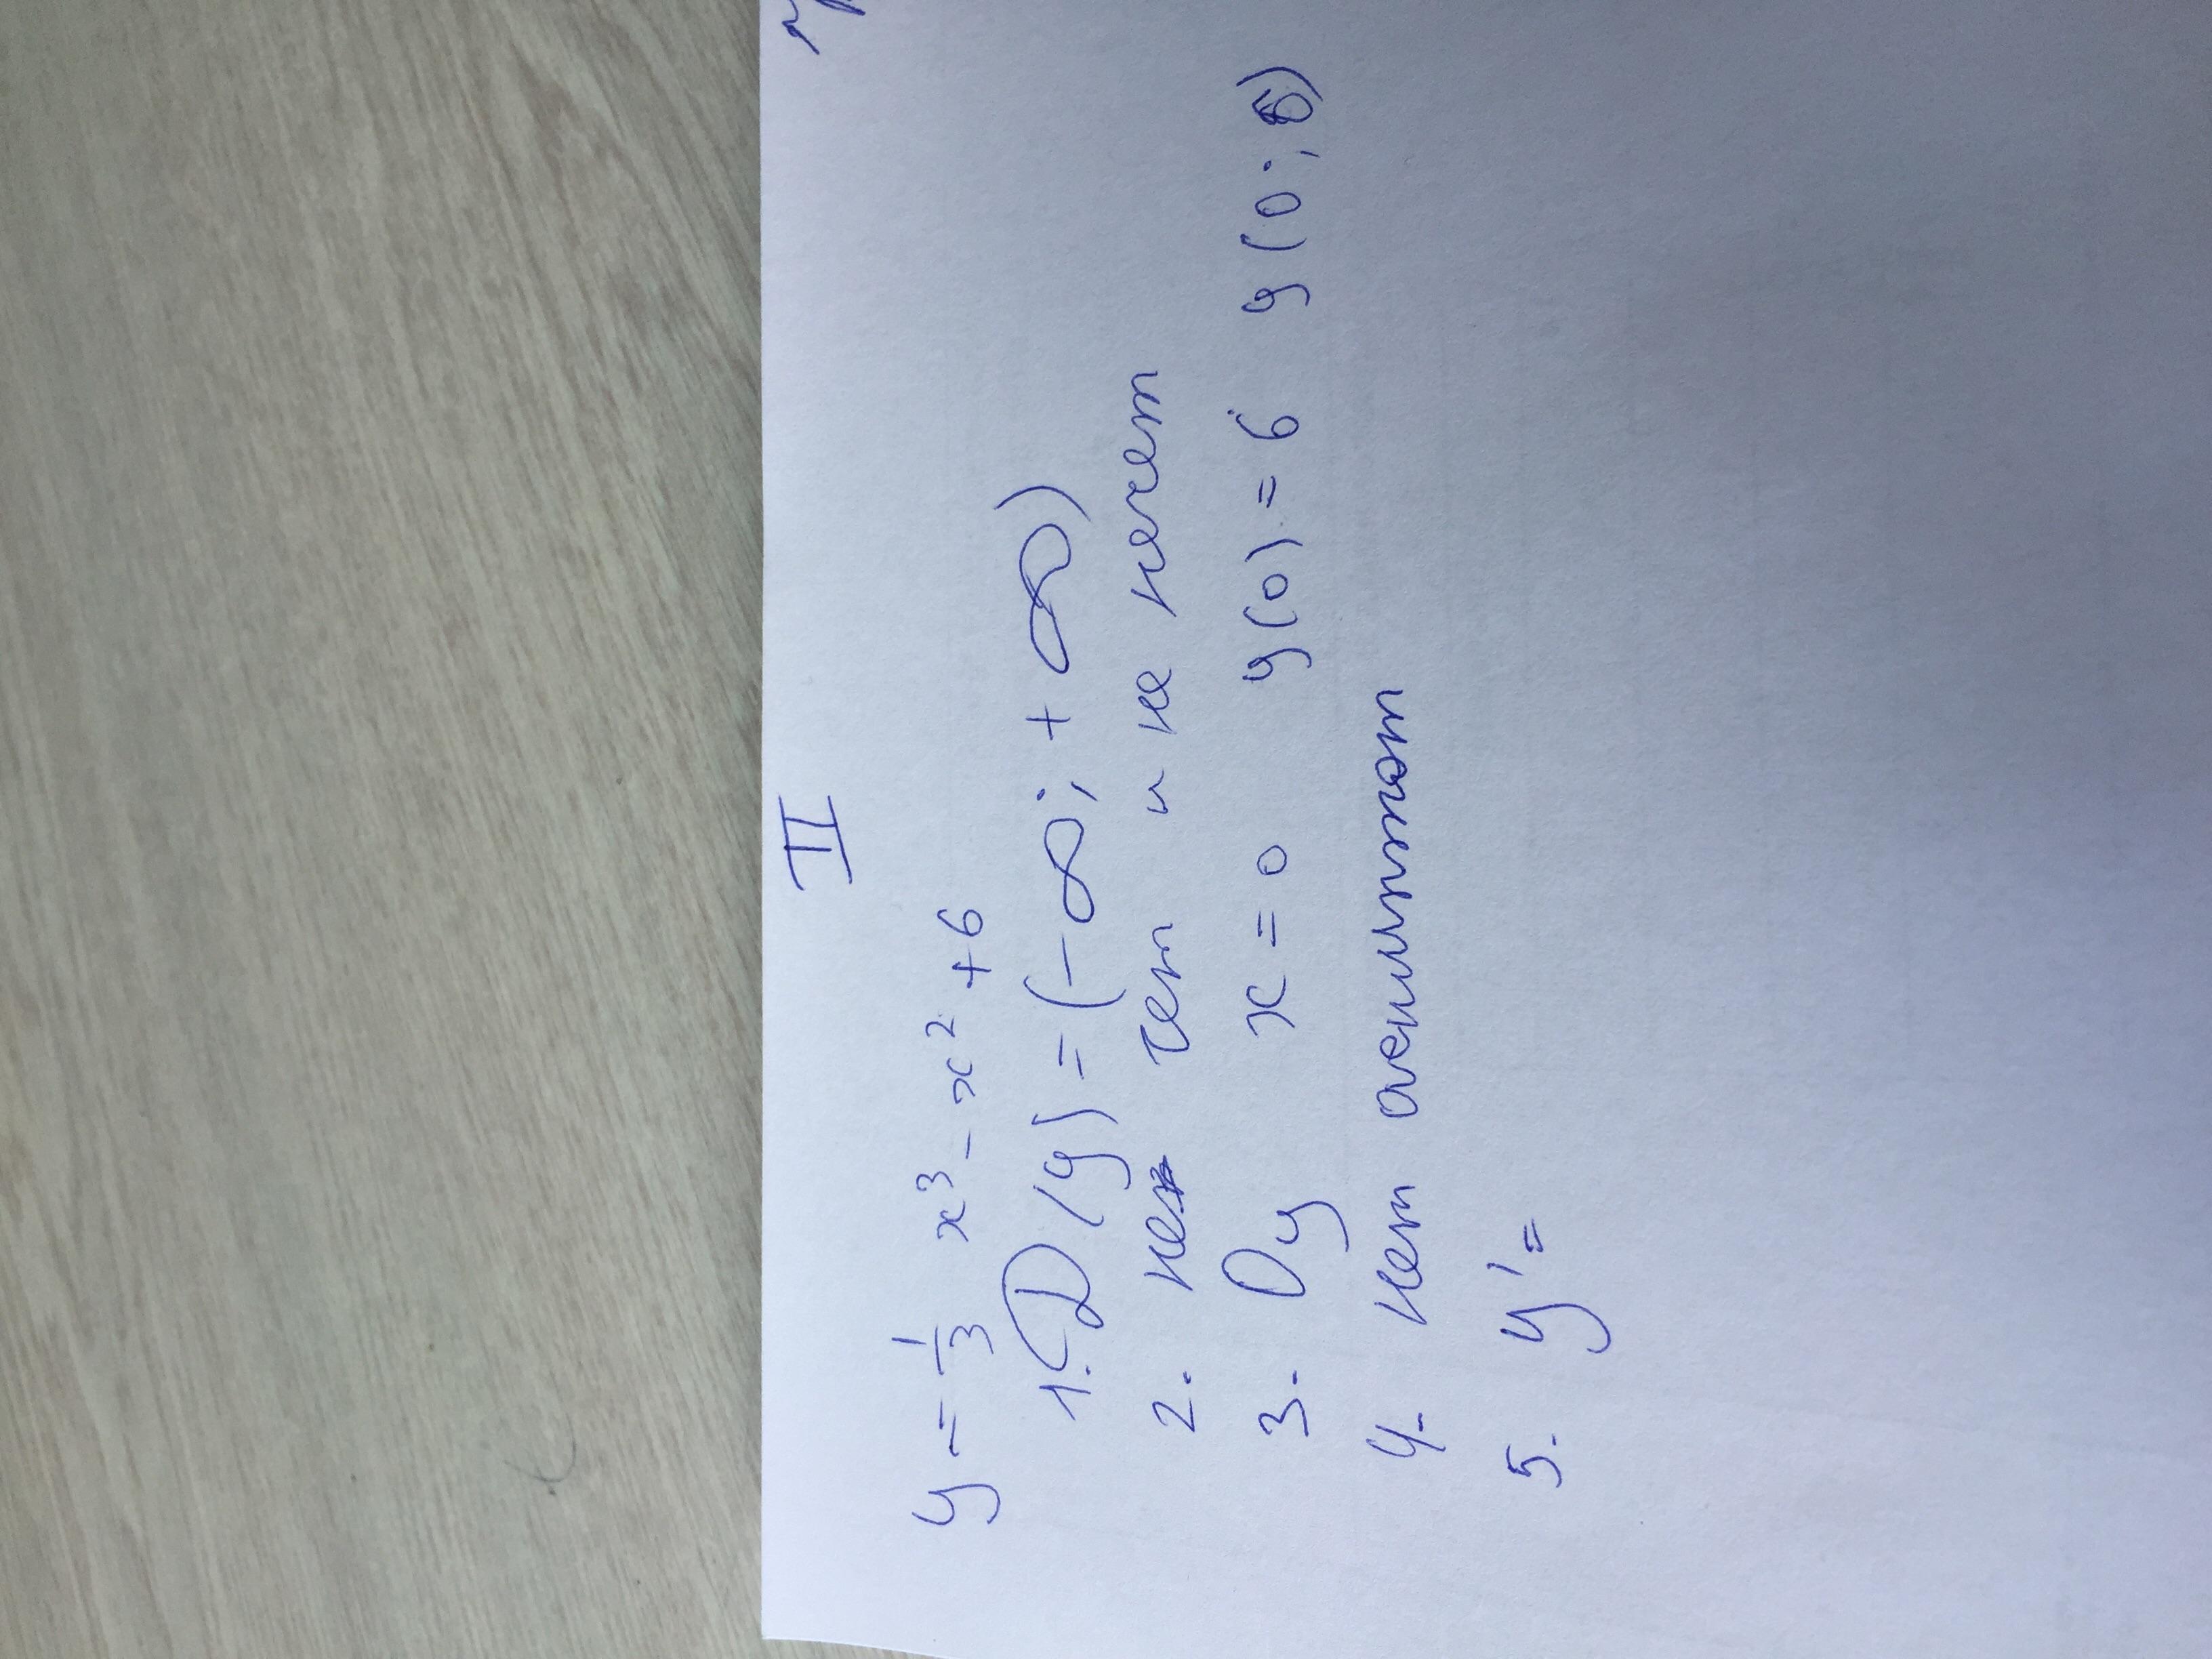 II
y = 1/3 x³ - x² + 6
1. D(y) = (-∞; +∞)
2. не чет и не нечет
3. Oy x = 0 y(0) = 6 y(0; 6)
4. нет асимптот
5. y' =